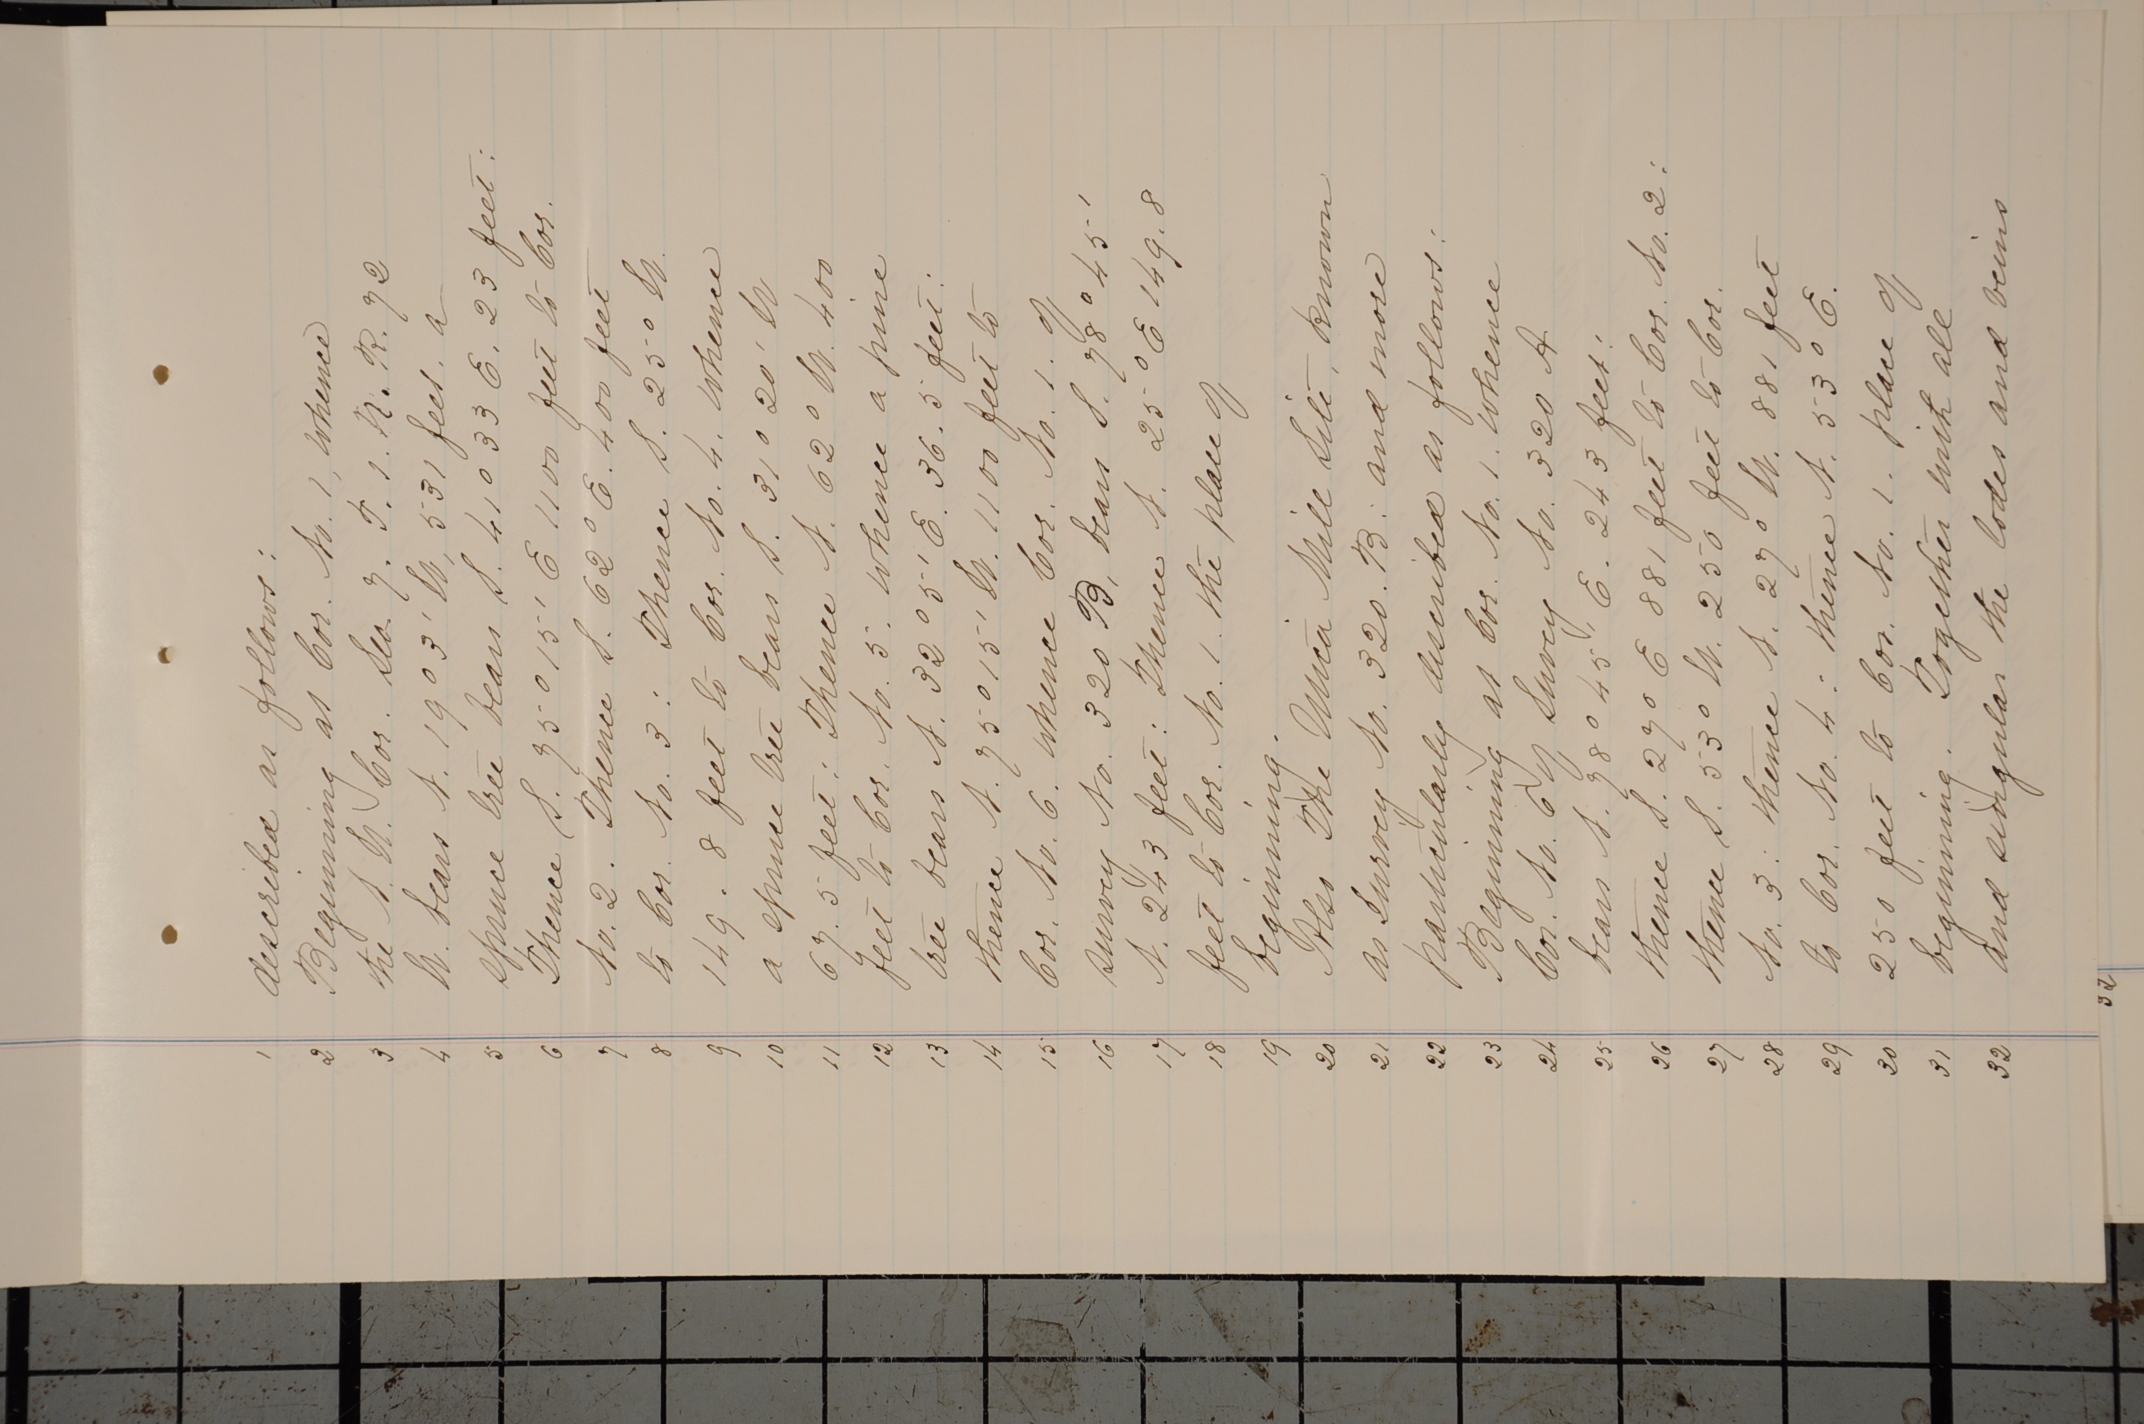 1 described as follows:
2 Beginning at Cor. No. 1, whence
3 the N.W. Cor. Sec. 7. T. 1. N. R. 72
4 W. bears N. 19° 03' W, 531 feet. a
5 spruce tree bears S. 41° 33 E. 23 feet:
6 Thence S. 75° 15' E 1100 feet to Cor.
7 No. 2. Thence S. 62° E. 400 feet
8 to Cor. No. 3: Thence S. 25° W.
9 149.8 feet to Cor. No. 4. whence
10 a spruce tree bears S. 31° 20' W
11 67.5 feet: Thence N. 62° W. 400
12 feet to Cor. No. 5. whence a pine
13 tree bears N. 32° 51' E. 36.5 feet:
14 thence N. 75° 15' W. 1100 feet to
15 Cor. No. 6. whence Cor. No. 1. of
16 survey No. 320 B, bears S. 78° 45'
17 N. 243 feet: Thence N. 25° E 149.8
18 feet to Cor. No. 1. the place of
19 beginning.
20 Also The Utica Mill Site, known
21 as Survey No. 320. B: and more
22 particularly described as follows:
23 Beginning at Cor. No. 1. whence
24 Cor. No. 6 of Survey No. 320 A
25 bears N. 78° 45', E. 243 feet:
26 thence S. 27° E 881 feet to Cor. No. 2:
27 thence S. 53° W. 250 feet to Cor.
28 No. 3: thence N. 27° W. 881 feet
29 to Cor. No. 4: thence N. 53° E.
30 250 feet to Cor. No. 1. place of
31 beginning. Together with all
32 and singular the lodes and veins
32